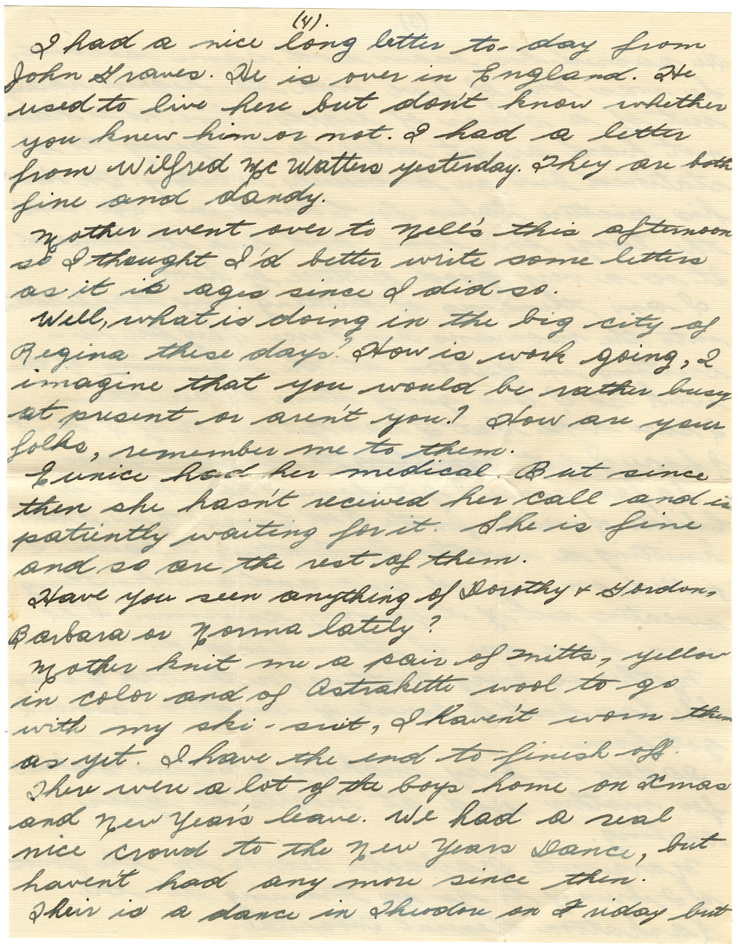 (4).
I had a nice long letter to-day from
John Graves. He is over in England. He
used to live here but don't know whether
you knew him or not. I had a letter
from Wilfred Mc Watters yesterday. They are both
fine and dandy.
Mother went over to Nell's this afternoon
so I thought I'd better write some letters
as it is ages since I did so.
Well, what is doing in the big city of
Regina these days? How is work going, I
imagine that you would be rather busy
at present or aren't you? How are your
folks, remember me to them.
Eunice had her medical. But since
then she hasn't recived her call and is
patiently waiting for it. She is fine
and so are the rest of them.
Have you seen anything of Dorothy & Gordon,
Barbara or Norma lately?
Mother knit me a pair of mitts, yellow
in color and of Astrakette wool to go
with my ski-suit, I haven't worn them
as yet. I have the end to finish off.
There were a lot of the boys home on Xmas
and New Year's leave. We had a real
nice crowd to the New Years Dance, but
haven't had any more since then.
Their is a dance in Theodore on Friday but